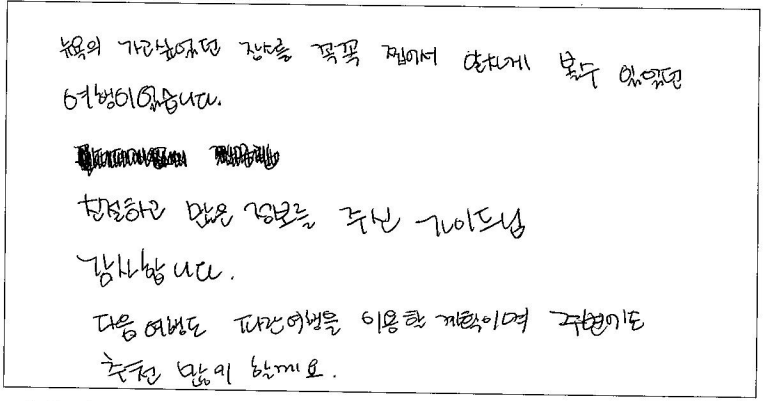 뉴욕의 가고싶었던 장소를 꼭꼭 찝어서 알차게 볼수 있었던
여행이었습니다.
친절하고 많은 정보를 주신 가이드님
감사합니다.
다음 여행도 파란여행을 이용할 계획이며 주변에도
추천 많이 할께요.